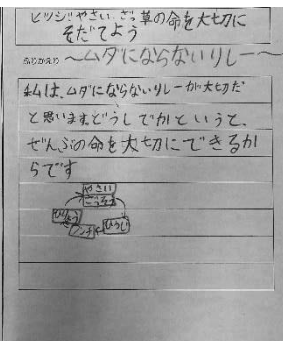 ヒツジやさい、ざっ草の命を大切に
そだてよう
ふりかえり 〜ムダにならないリレー〜
私は、ムダにならないリレーが大切だ
と思いますどうしてかというと、
ぜんぶの命を大切にできるか
らです
やさい
ざっそう
ひりょう
ウンチ
ひつじ